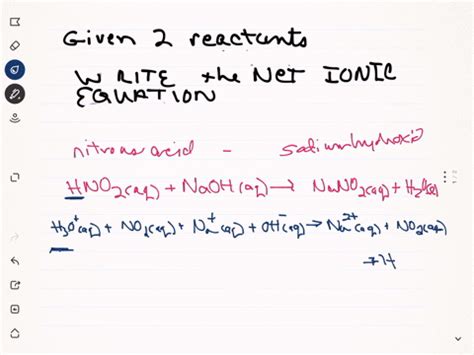 Given 2 reactants
WRITE the NET IONIC
EQUATION
nitrous acid -
HNO₂(aq) + NaOH(aq) → NaNO₂(aq) +
H₃O⁺(aq) + NO₂(aq) + Na⁺(aq) + OH⁻(aq) → Na²⁺(aq) + NO₂(aq)